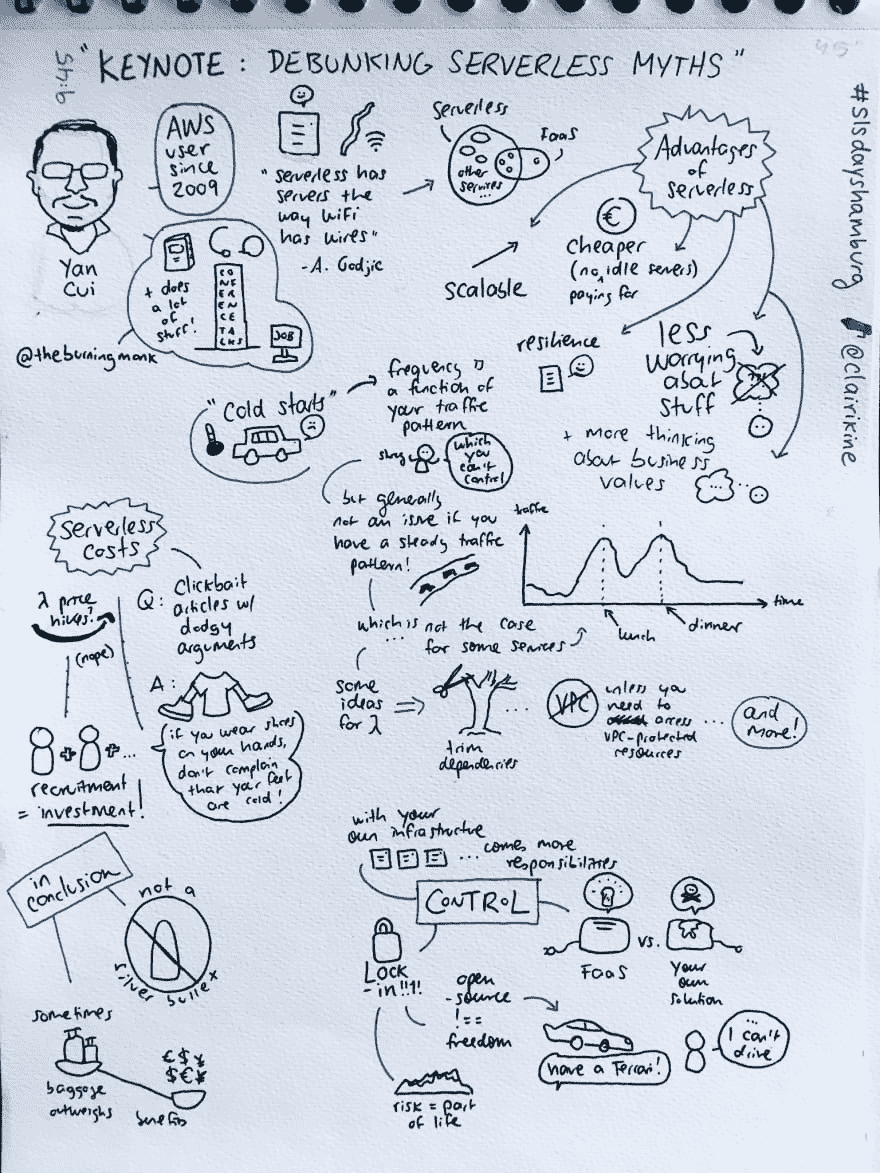 "KEYNOTE: DEBUNKING SERVERLESS MYTHS"
9:45
#slsdayshamburg
@clairikine
Yan
Cui
@theburningmonk
AWS
user
since
2009
+ does
a lot
of
stuff!
CONFERENCE
TALKS
JOB
"serverless has
servers the
way WiFi
has wires"
-A. Godjic
Serverless
FaaS
other
services
...
Advantages
of
serverless
scalable
€
cheaper
(no idle servers)
paying for
resilience
less
worrying
about
stuff
+ more thinking
about business
values
...
"cold starts"
frequency is
a function of
your traffic
pattern
which
you
can't
control
but generally
not an issue if you
have a steady traffic
pattern!
which is not the case
...
for some services
traffic
time
lunch
dinner
some
ideas
for λ
trim
dependencies
...
VPC
unless you
need to
access
VPC-protected
resources
...
and
more!
Serverless
costs
λ price
hikes?
(nope)
recruitment
= investment!
+ + ...
Q: Clickbait
articles w/
dodgy
arguments
A:
if you wear shoes
on your hands,
don't complain
that your feet
are cold!
with your
own infrastructure
... comes more
responsibilities
CONTROL
FaaS
vs.
Your
own
solution
Lock
-in!!1!
open
-source
!==
freedom
have a Ferrari!
...
I can't
drive
risk = part
of life
in
conclusion
not a
silver bullet
sometimes
baggage
outweighs
benefits
€$¥
$€¥